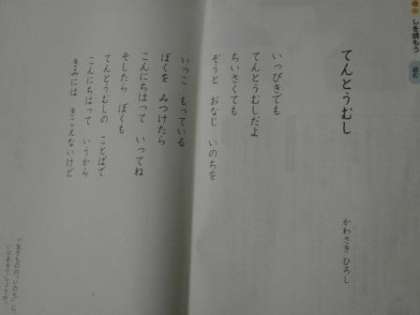 しを読もう
てんとうむし
かわさき ひろし
いっぴきでも
てんとうむしだよ
ちいさくても
ぞうと おなじ いのちを
いっこ もっている
ぼくを みつけたら
こんにちはって いってね
そしたら ぼくも
てんとうむしの ことばで
こんにちはって いうから
きみには きこえないけど